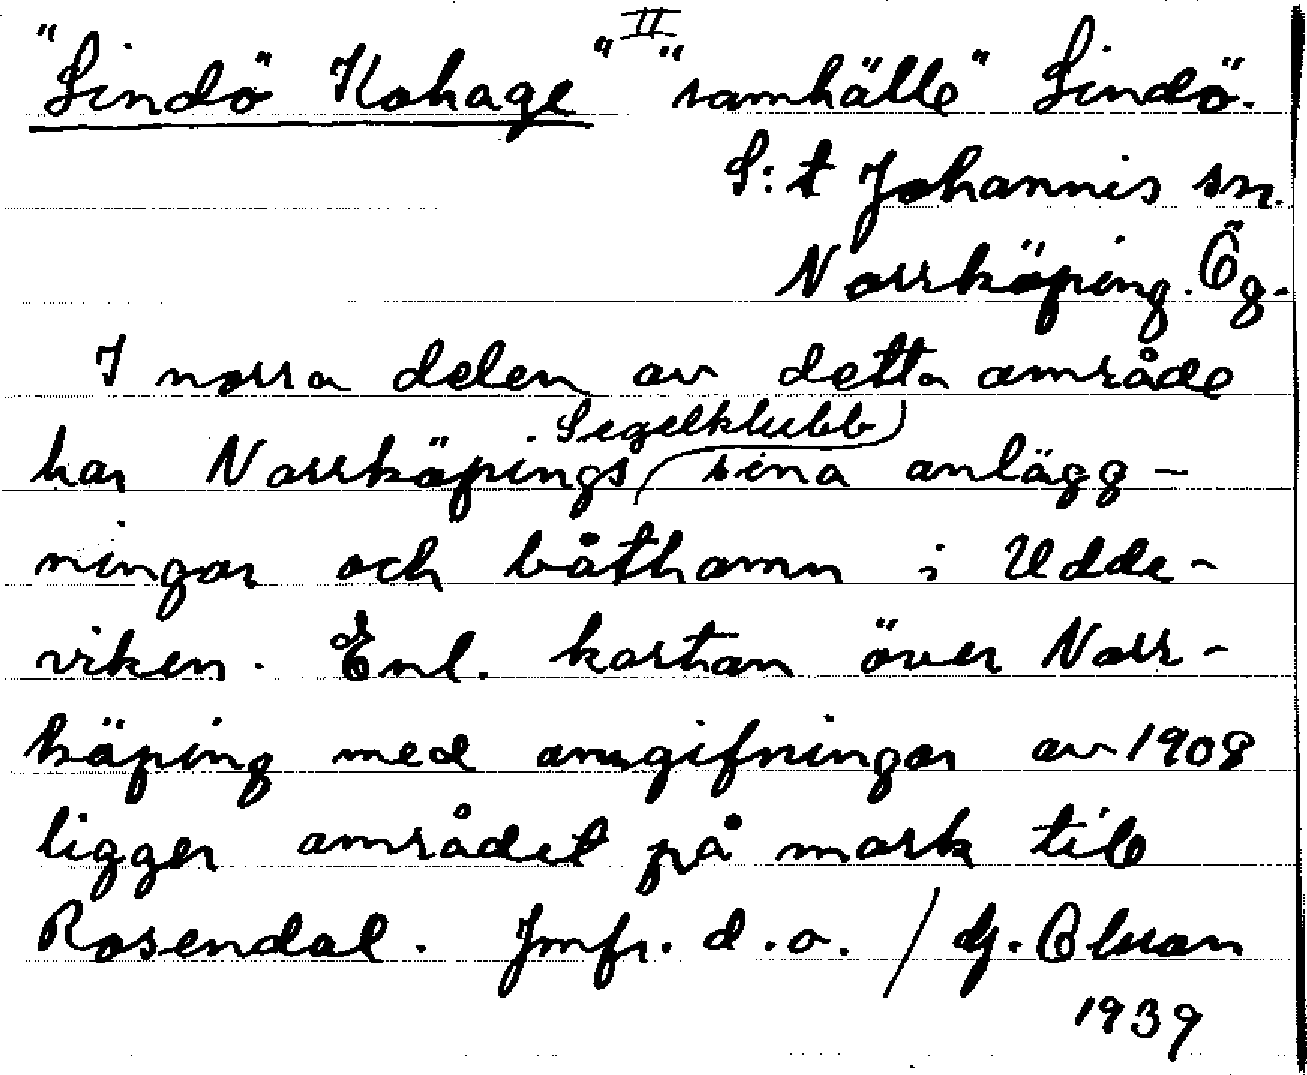 II
"Lindö" Kohage" "samhälle" Lindö.
S:t Johannis sn.
Norrköping. Ög.
I norra delen av detta område
har Norrköpings Segelklubb sina anlägg-
ningar och båthamn i Udde-
viken. Enl. kartan över Norr-
köping med omgifningar av 1908
ligger området på mark till
Rosendal. Jmfr. d.o. / G. Olsson
1939